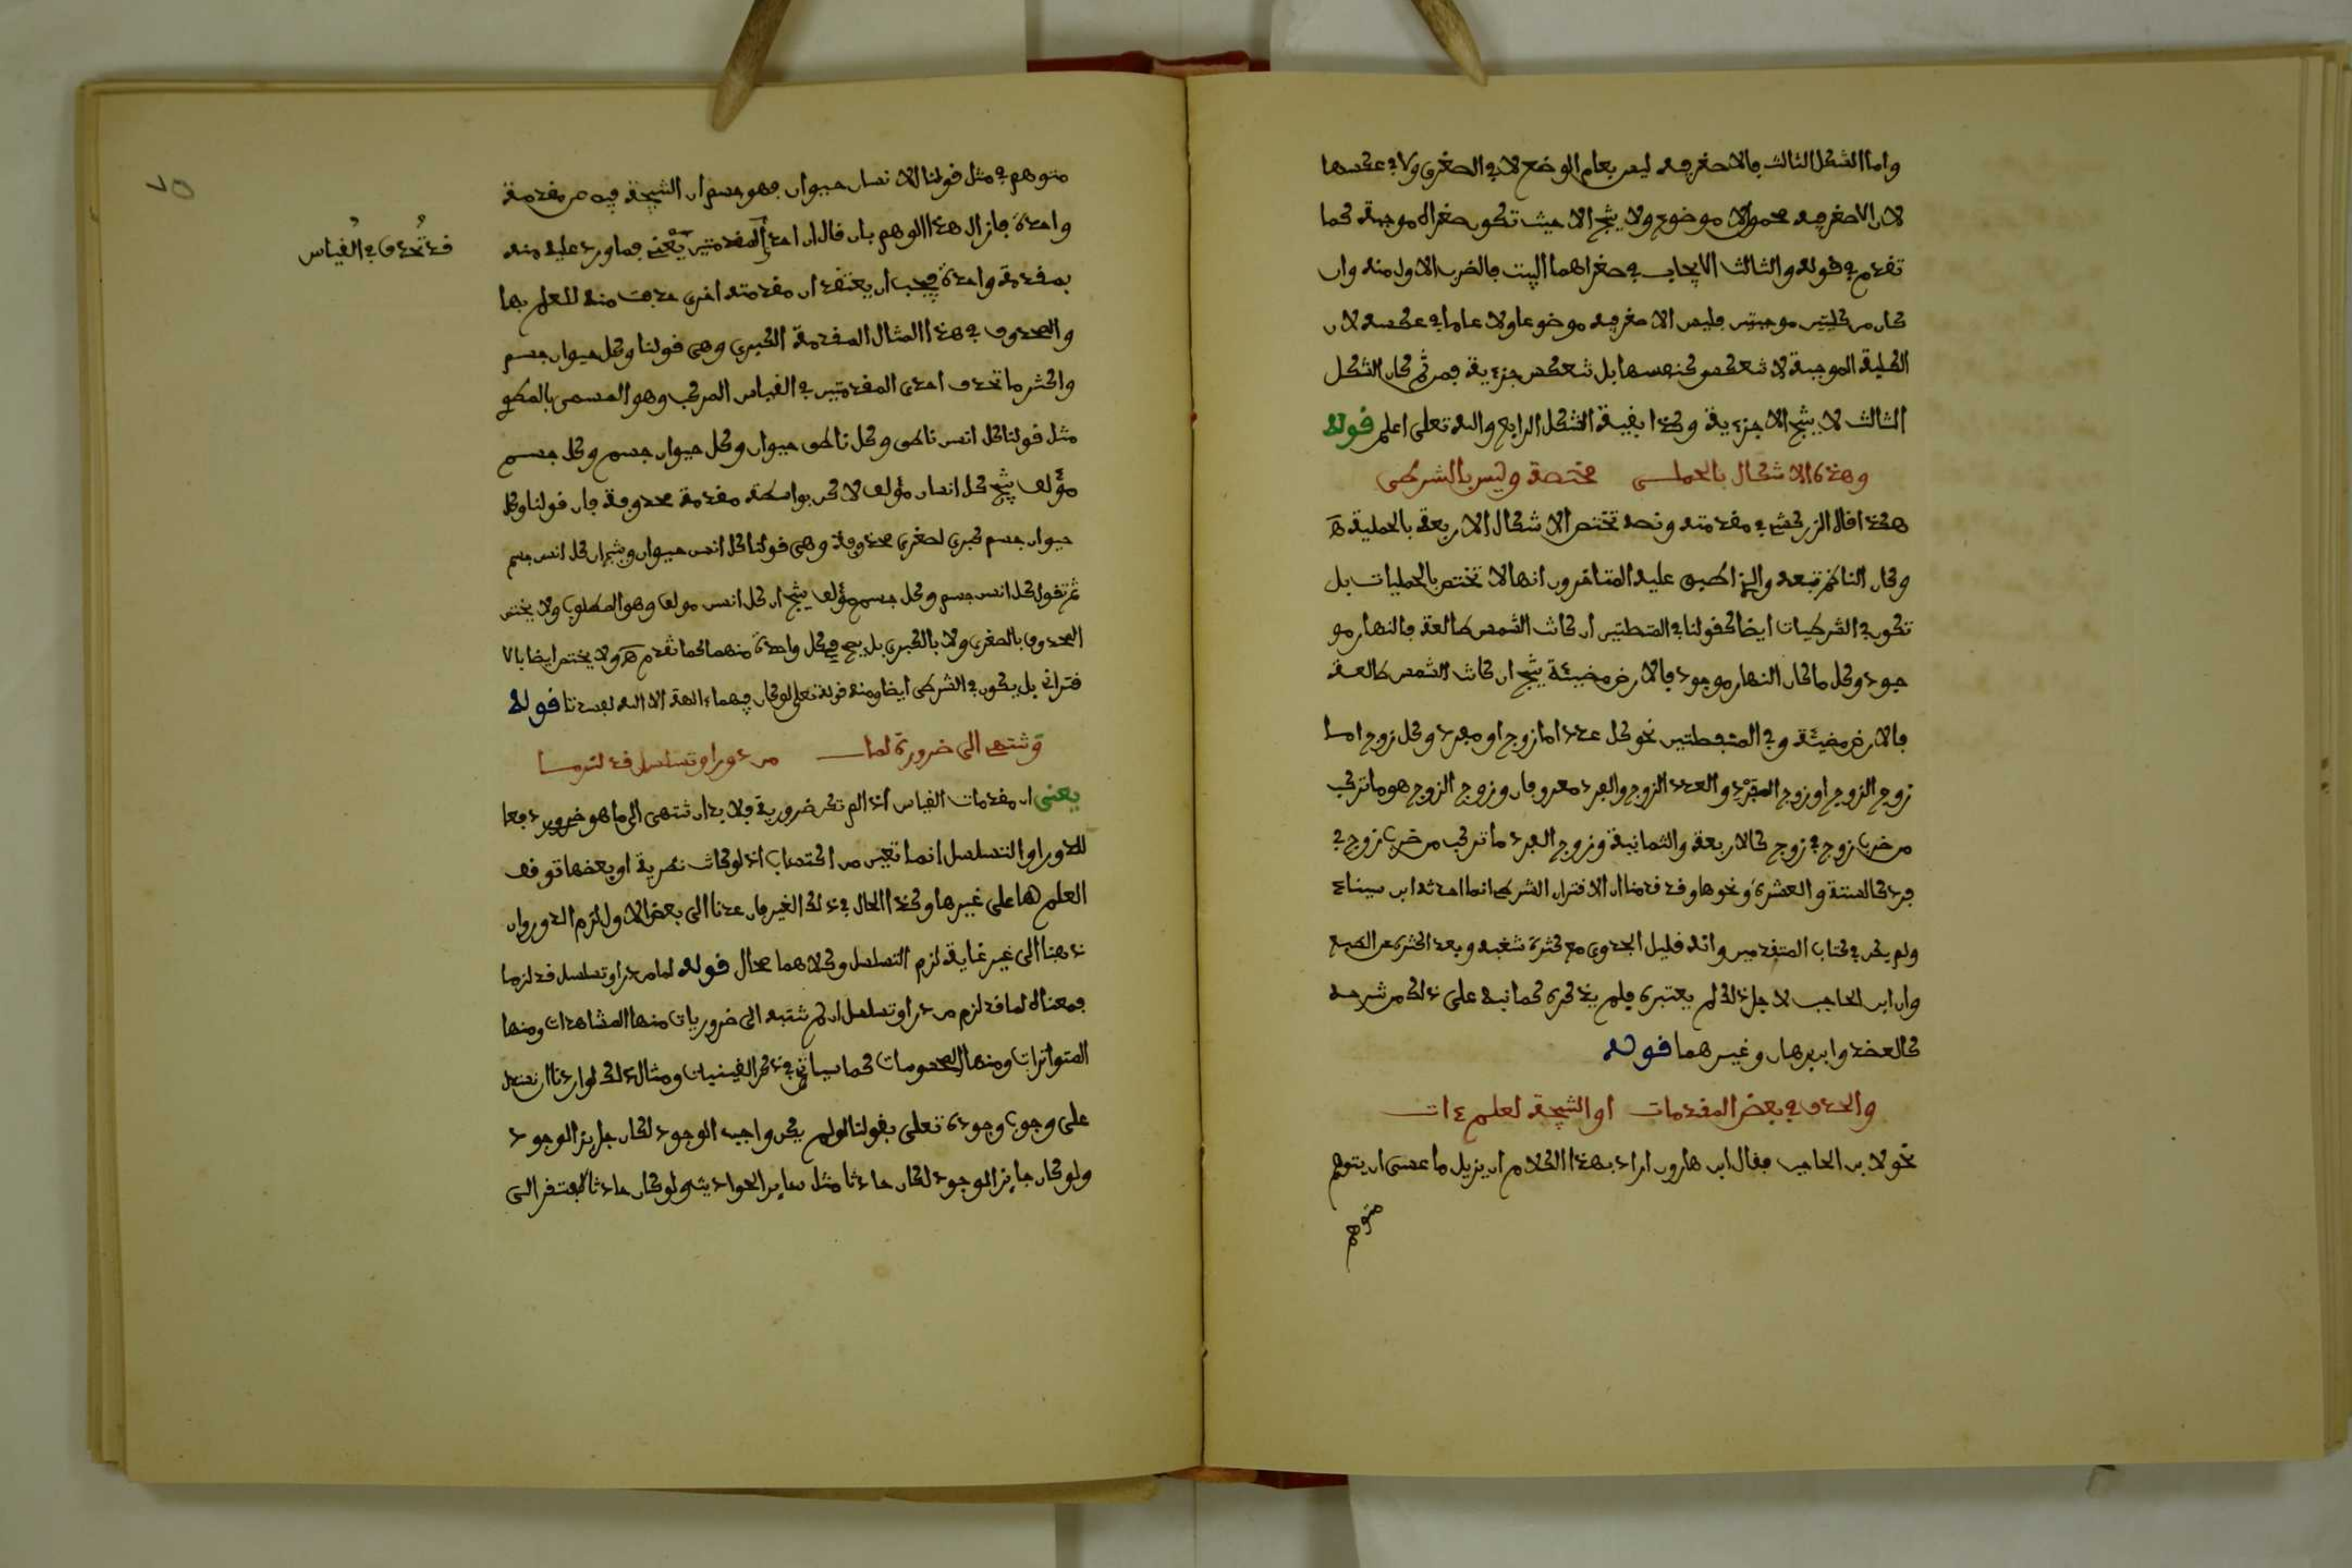 واما الشكل الثالث فالاصغر فيه ليس بعام الوضع لا في الصغرى ولا في عكسها
لان الاصغر فيه محمول لا موضوع ولا ينتج الا حيث تكون صغراه موجبة كما
تقدم في قوله والثالث الايجاب في صغراهما البيت فالضرب الاول منه وان
كان من كليتين موجبتين فليس الاصغر فيه موضوعا ولا عاما في عكسه لان
الكلية الموجبة لا تنعكس كنفسها بل تنعكس جزءية فمن ثم كان الشكل
الثالث لا ينتج الا جزءية وكذا بقية الشكل الرابع والله تعلى اعلم قوله
وهذه الاشكال بالحملي مختصة وليس بالشرطي
هكذا قال الزركشي في مقدمته ونصه تختص الاشكال الاربعة بالحملية
وكان الناظم تبعه والذي اطبق عليه المتاخرون انها لا تختص بالحمليات بل
تكون في الشرطيات ايضا كقولنا في المتصلتين ان كانت الشمس طالعة فالنهار مو
جود وكل ما كان النهار موجود فالارض مضيئة ينتج ان كانت الشمس طالعة
فالارض مضيئة وفي المنفصلتين نحو كل عدد اما زوج او مفرد وكل زوج اما
زوج الزوج او زوج المفرد والعدد الزوج والفرد معروفان وزوج الزوج هو ما تركب
من ضرب زوج في زوج كالاربعة والثمانية وزوج الفرد ما تركب من ضرب زوج في
فرد كالستة والعشرة ونحوها وقد قدمنا ان الاقتران الشرطي انما احدثه ابن سيناء
ولم يكن في كتاب المتقدمين وانه قليل الجدوى مع كثرة شغبه وبعد اكثره عن الطبع
وان ابن الحاجب لاجل ذلك لم يعتبره فلم يذكره كما نبه على ذلك من شرحه
كالعضد وابن برهان وغيرهما قوله
والحذف في بعض المقدمات او النتيجة لعلم ءات
نحو لابن الحاجب فقال ابن هارون اراد بهذا الكلام ان يزيل ما عسى ان يتوهم
متوهم
٧٥
متوهم في مثل قولنا الانسان حيوان فهو جسم ان النتيجة فيه من مقدمة
واحدة فازال هذا الوهم بان قال ان احدى المقدمتين يعني فما ورد عليه منه
قد تحذف في القياس
بمقدمة واحدة فيجب ان يعتقد ان مقدمته اخرى حذفت منه للعلم بها
والمحذوف في هذا المثال المقدمة الكبرى وهي قولنا وكل حيوان جسم
واكثر ما تحذف احدى المقدمتين في القياس المركب وهو المسمى بالمطو
مثل قولنا كل انس ناطق وكل ناطق حيوان وكل حيوان جسم وكل جسم
مؤلف ينتج كل انسان مؤلف لاكن بواسطة مقدمة محذوفة فان قولنا وكل
حيوان جسم كبرى لصغرى محذوفة وهي قولنا كل انس حيوان وينتج ان كل انس جسم
ثم تقول كل انس جسم وكل جسم مؤلف ينتج ان كل انس مولف وهو المطلوب ولا يختص
المحذوف بالصغرى ولا بالكبرى بل يصح في كل واحدة منهما كما تقدم ولا يختص ايضا بالا
قتراني بل يكون في الشرطي ايضا ومنه قوله تعلى لو كان فيهما ءالهة الا الله لفسدتا قوله
وتنتهي الى ضرورة لما من دور او تسلسل قد لزما
يعني ان مقدمات القياس اذا لم تكن ضرورية فلا بد ان تنتهي الى ما هو ضروري دفعا
للدور او التسلسل انما تعين من اكتساب اذ لو كانت نظرية او بعضها توقف
العلم لها على غيرها وكذا الحال في ذلك الغير فان عدنا الى بعض الاول لزم الدور وان
ذهبنا الى غير غاية لزم التسلسل وكلاهما محال قوله لما من دور او تسلسل قد لزما
فمعناه لما قد لزم من دور او تسلسل ان لم تنته الى ضروريات منها المشاهدات ومنها
المتواترات ومنها المحسوسات كما سياتي في ذكر اليقينيات ومثال ذلك لو اردنا ان نستدل
على وجوب وجوده تعلى بقولنا لو لم يكن واجب الوجود لكان جايز الوجود
ولو كان جايز الموجود لكان حادثا مثل ساير الحوادث ولو كان حادثا لافتقر الى